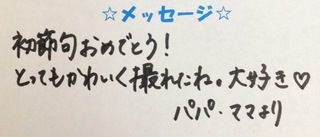 ☆メッセージ☆
初節句おめでとう!
とってもかわいく撮れたね。大好き♡
パパ・ママより